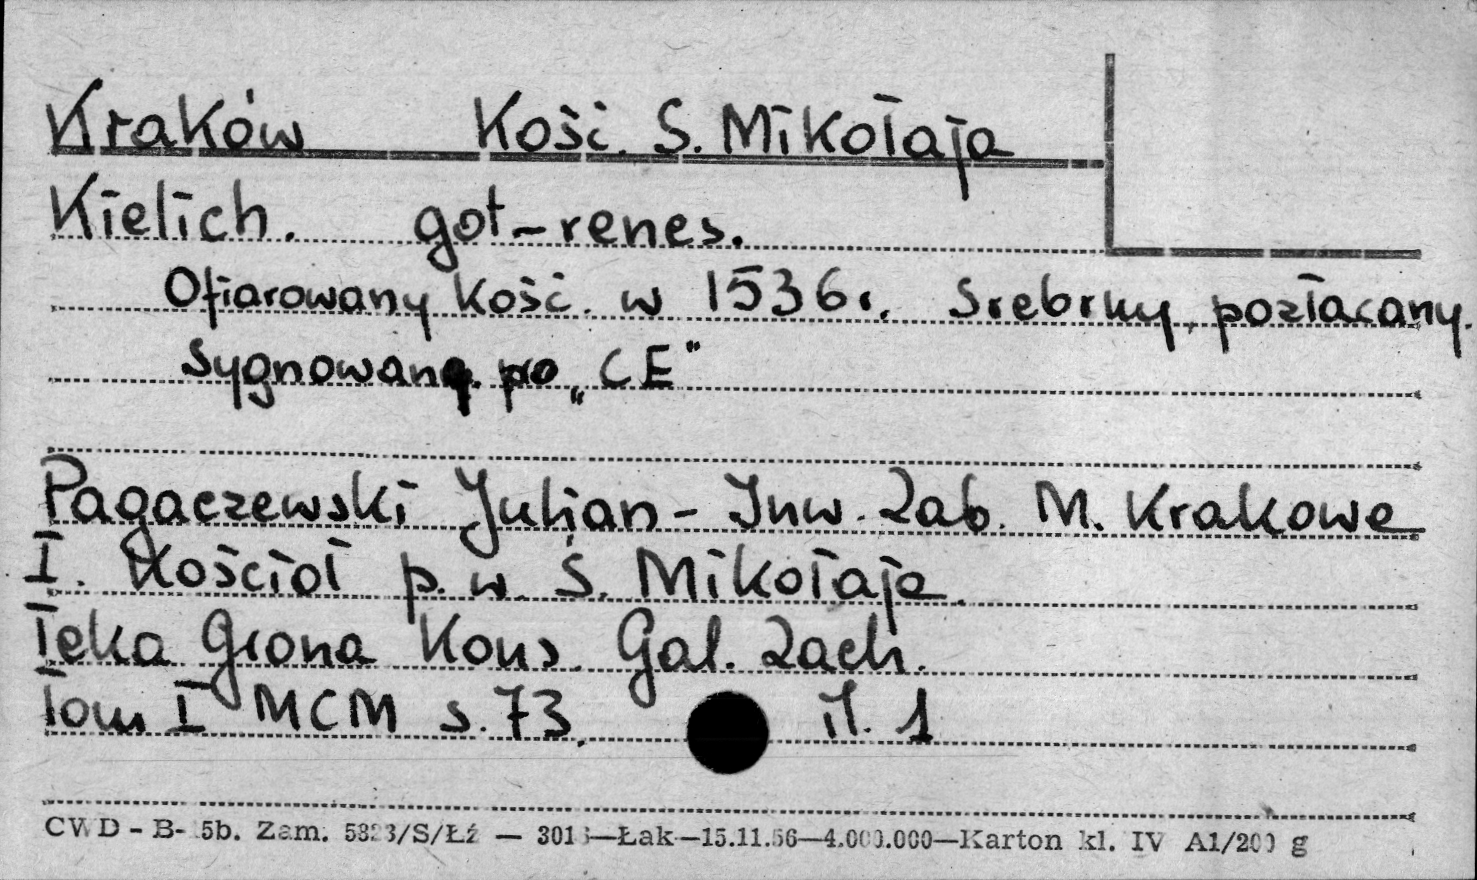 Kraków Kość. S. Mikołaja
Kielich. got-renes.
Ofiarowany kość. w 1536 r. Srebrny, pozłacany.
Sygnowany „CE"
Pagaczewski Juljan - Inw. Zab. M. Krakowa
I. Kościół p. w. Ś. Mikołaja.
Teka Grona Kons. Gal. Zach.
Tom I MCM s. 73. il. 1
CWD - B- 5b. Zam. 5823/S/Łź — 301 —Łak—15.11.56—4.000.000—Karton kl. IV A1/200 g